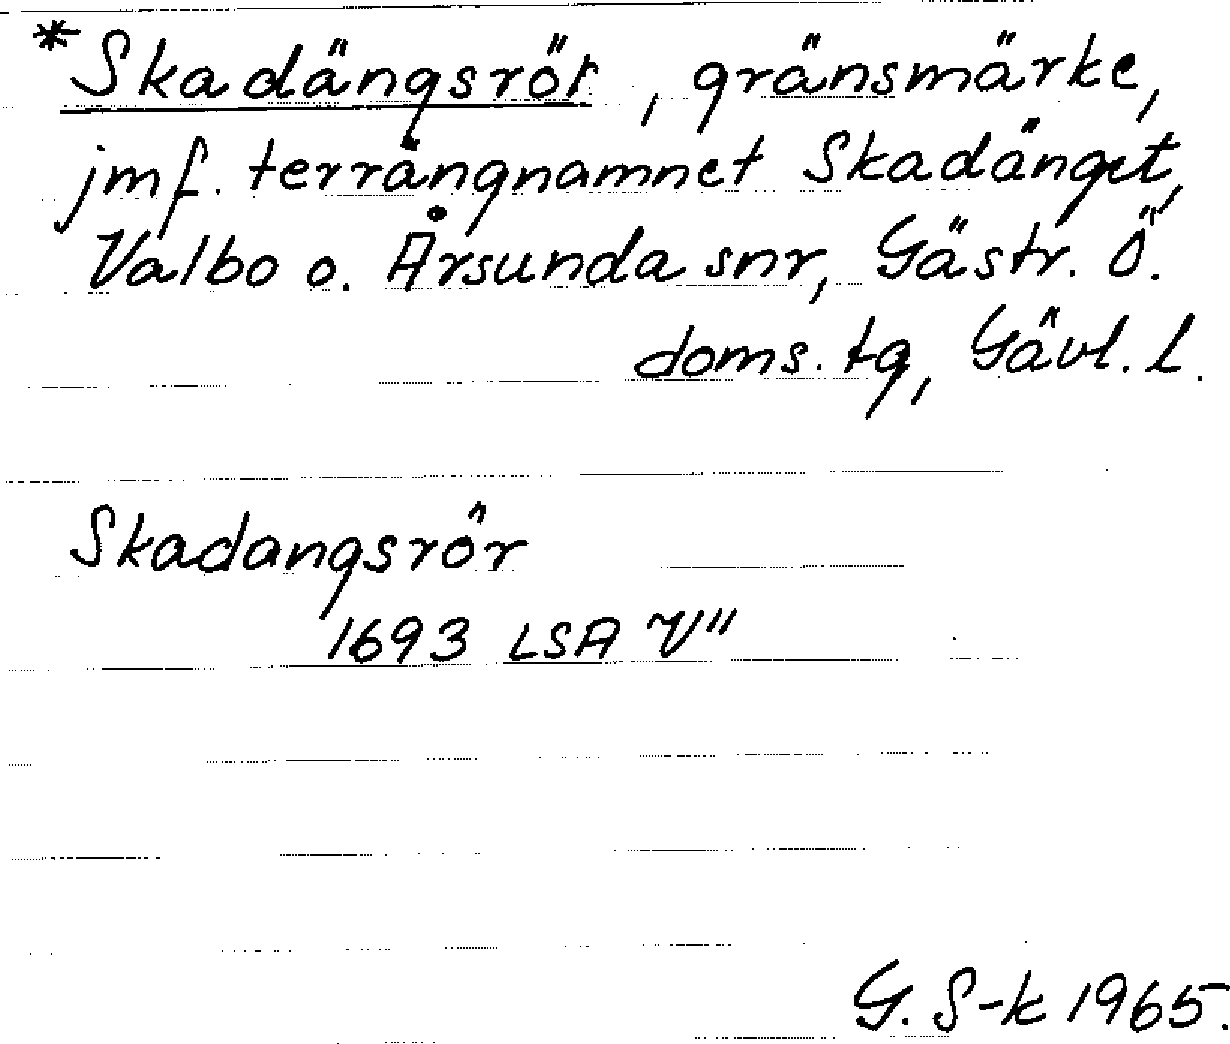 *Skadängsrör, gränsmärke,
jmf. terrängnamnet Skadänget,
Valbo o. Årsunda snr, Gästr. Ö.
doms. tg, Gävl. L.
Skadangsrör
1693 LSA V"
G. S-k 1965.